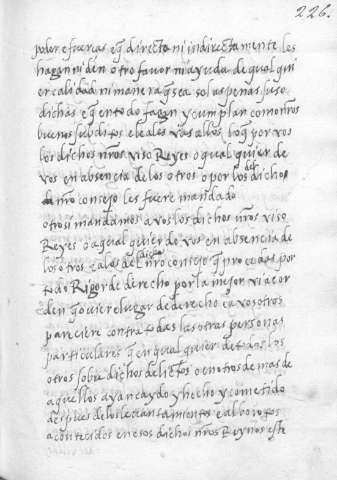 226.
poder e fuercas e q̃ directa ni indirectamente les
hagan ni den otro favor ni ayuda de qual qui
er calidad ni manera q̃ sea so las penas suso
dichas e q̃ en todo fagan y cumplan como nr̃os
buenos subditos e leales vasallos lo q̃ por vos
los dichos nr̃os viso Reyes o qual quier de
vos en absencia de los otros o por los del dicho
nr̃o consejo les fuere mandado
otrosi mandamos a vos los dichos nr̃os viso
Reyes o a qual quier de vos en absencia de
los otros e a los del dicho nr̃o consejo q̃ procedais por
todo Rigor de derecho por la mejor via e or
den q̃ oviere lugar de derecho e a vosotros
pareciere contra todas las otras personas
particulares q̃ en qual quier de los
otros sobre dichos delictos o en otros de mas de
aquellos ayan caydo y hecho y cometido
despues de los levantamientos e alborotos
acontecidos en esos dichos nr̃os Reynos este